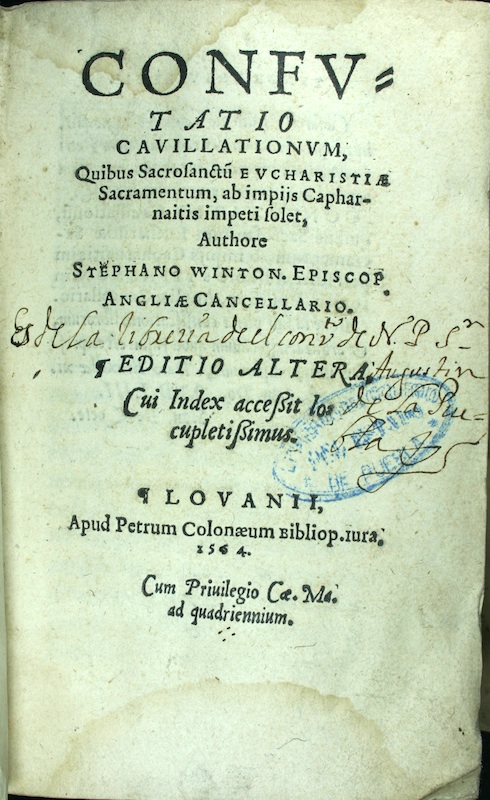 CONFV=
TATIO
CAVILLATIONVM,
Quibus Sacrosanctū EVCHARISTIÆ
Sacramentum, ab impijs Caphar-
naitis impeti solet,
Authore
STEPHANO WINTON. EPISCOP.
ANGLIÆ CANCELLARIO.
Es de la libreria de el convto de N. P. Sn
Augustin
de la Pue-
bla
¶ EDITIO ALTERA,
Cui Index accessit lo-
cupletissimus.
DE PUEBLA
¶ LOVANII,
Apud Petrum Colonæum Bibliop. iura.
1564.
Cum Priuilegio Cæ. Ma.
ad quadriennium.